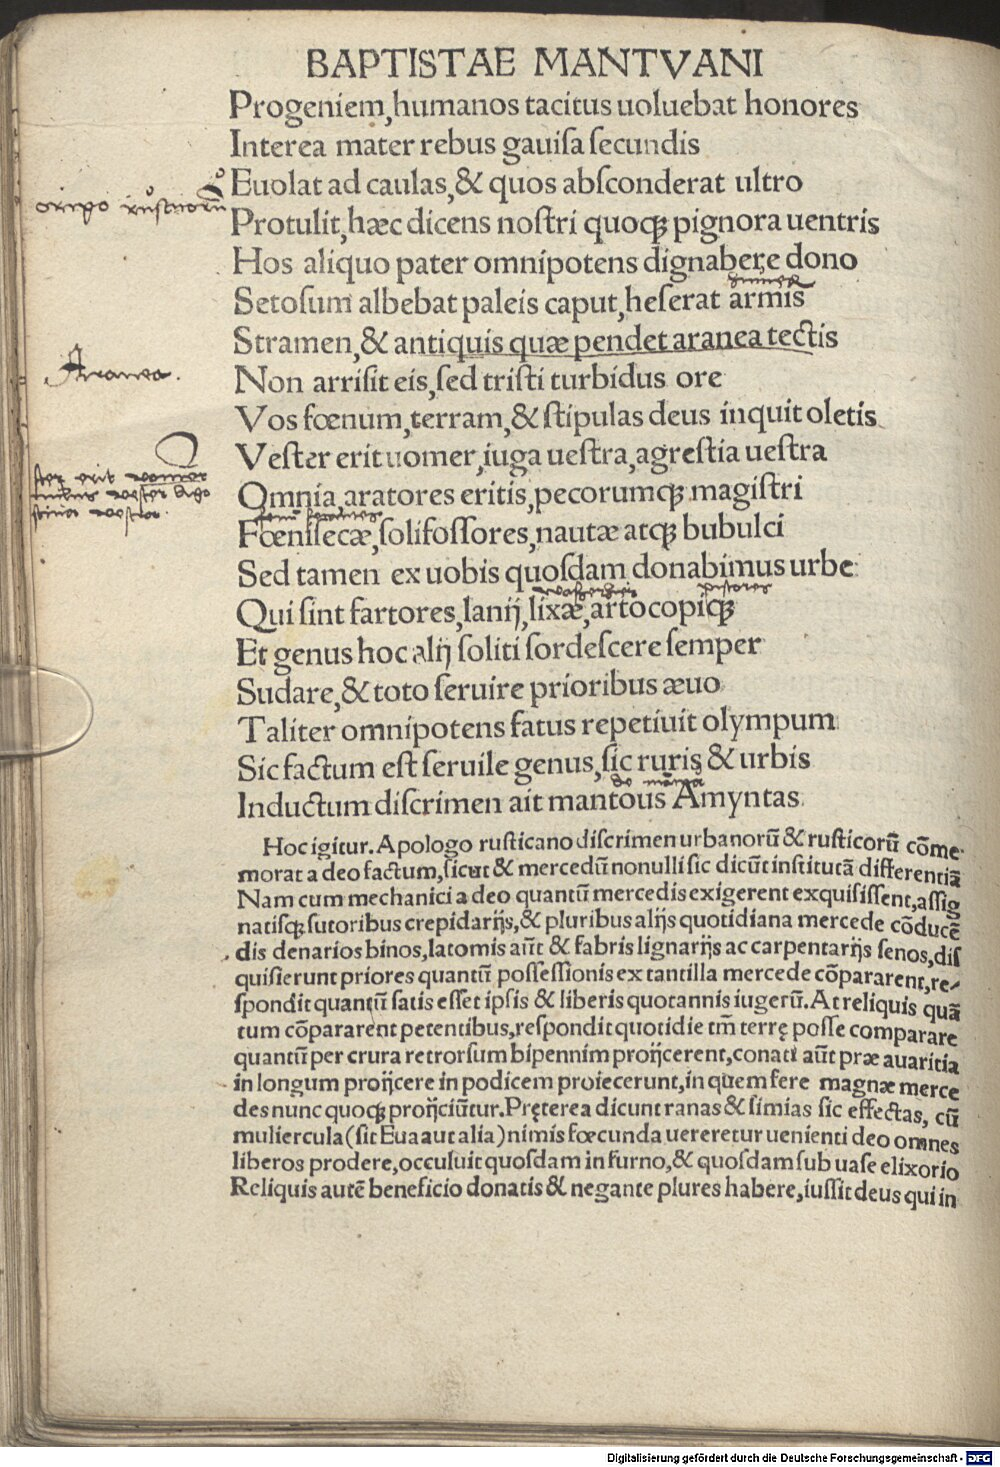 BAPTISTAE MANTVANI
Progeniem, humanos tacitus uoluebat honores
Interea mater rebus gauisa secundis
Euolat ad caulas, & quos absconderat ultro
origo rusticorũ
Protulit, hæc dicens nostri quoqꝫ pignora uentris
Hos aliquo pater omnipotens dignabere dono
Setosum albebat paleis caput, heserat armis
Stramen, & antiquis quæ pendet aranea tectis
Aranea.
Non arrisit eis, sed tristi turbidus ore
Vos fœnum, terram, & stipulas deus inquit oletis
Vester erit uomer, iuga uestra, agrestia uestra
Omnia, aratores eritis, pecorumqꝫ magistri
Fœnisecæ, solifossores, nautæ atqꝫ bubulci
Sed tamen ex uobis quosdam donabimus urbe
pistores
Qui sint fartores, lanij, lixæ, artocopiqꝫ
Et genus hoc alij soliti sordescere semper
Sudare, & toto seruire prioribus æuo
Taliter omnipotens fatus repetiuit olympum
Sic factum est seruile genus, sic ruris & urbis
Inductum discrimen ait mantous Amyntas
Hoc igitur. Apologo rusticano discrimen urbanorũ & rusticorũ cõme-
morat a deo factum, sicut & mercedũ nonulli sic dicũt institutã differentiã
Nam cum mechanici a deo quantũ mercedis exigerent exquisissent, assig
natisqꝫ sutoribus crepidarijs, & pluribus alijs quotidiana mercede cõducẽ
dis denarios binos, latomis aũt & fabris lignarijs ac carpentarijs senos, dis
quisierunt priores quantũ possessionis ex tantilla mercede cõpararent, re-
spondit quantũ satis esset ipsis & liberis quotannis iugerũ. At reliquis quã
tum cõpararent petentibus, respondit quotidie tm̃ terrę posse comparare
quantũ per crura retrorsum bipennim proijcerent, conati aũt præ auaritia
in longum proijcere in podicem proiecerunt, in quem fere magnæ merce
des nunc quoqꝫ proijciũtur. Pręterea dicunt ranas & simias sic effectas, cũ
muliercula (sit Eua aut alia) nimis fœcunda uereretur uenienti deo omnes
liberos prodere, occuluit quosdam in furno, & quosdam sub uase elixorio
Reliquis autẽ beneficio donatis & negante plures habere, iussit deus qui in
Digitalisierung gefördert durch die Deutsche Forschungsgemeinschaft - DFG